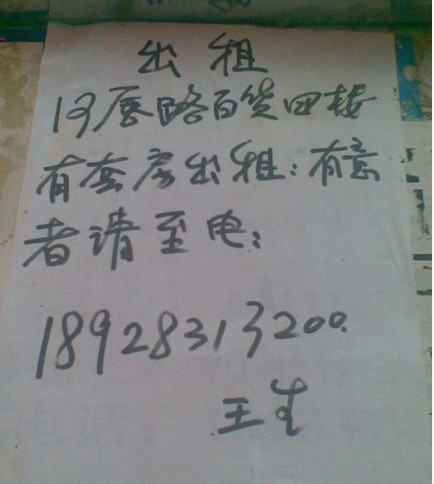 出租
河唇路百货四楼
有套房出租：有意
者请至电：
18928313200.
王生